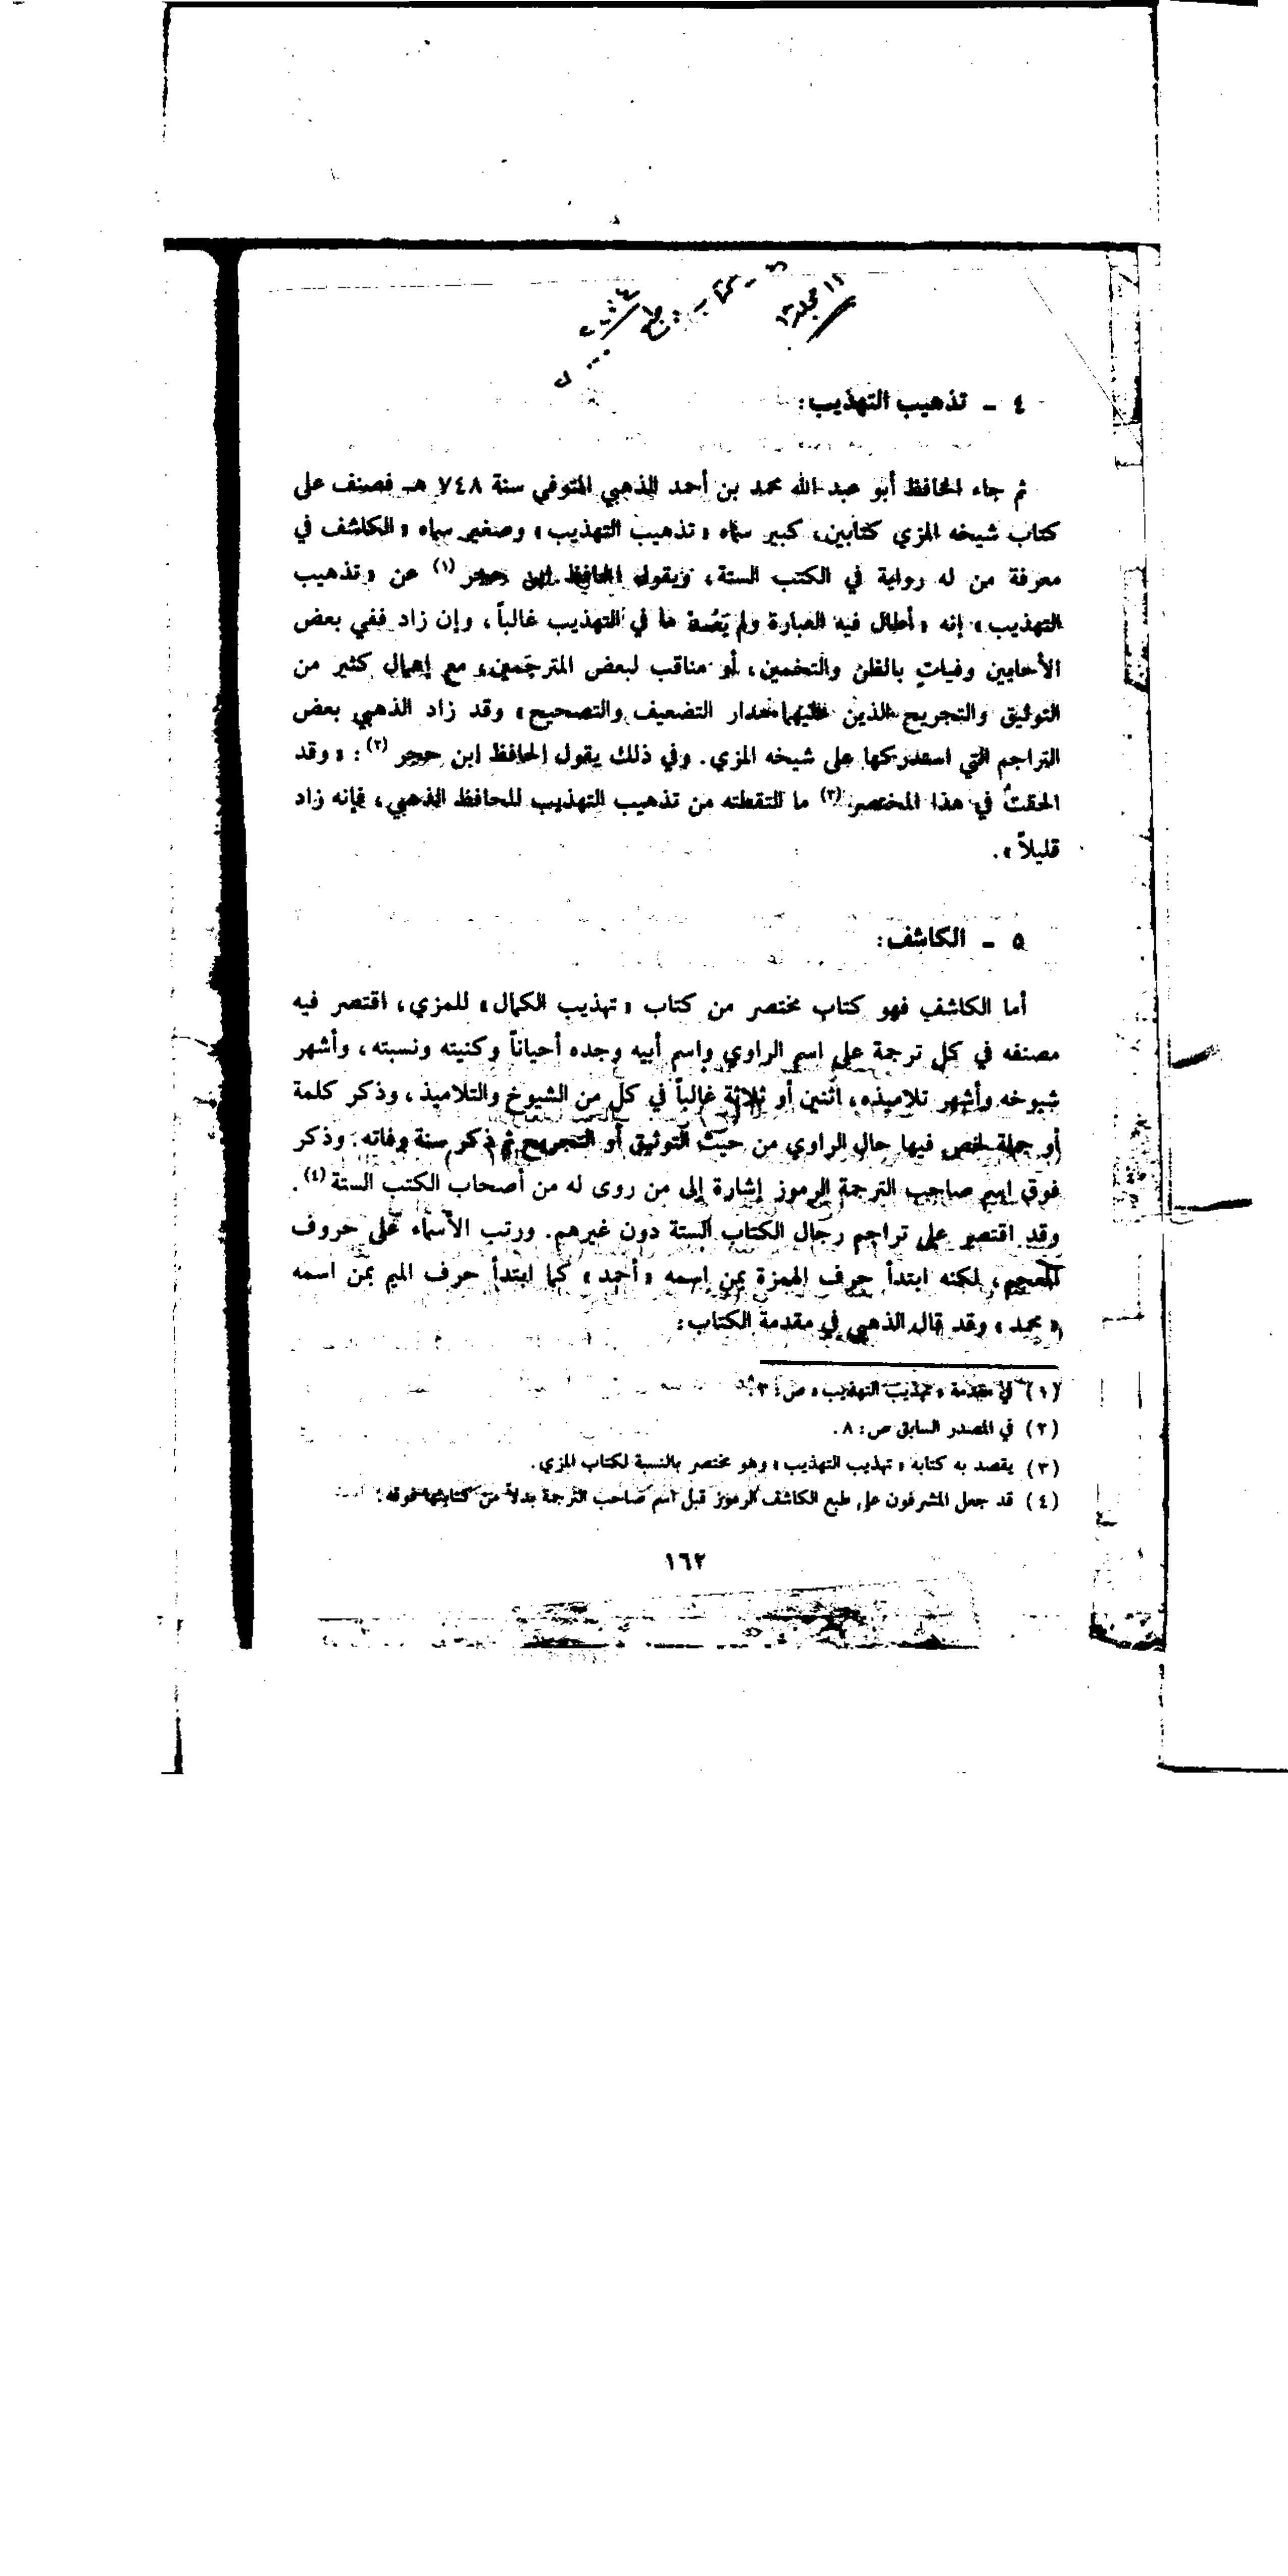 ١١ مجلد
كتاب
طبع
٤ - تذهيب التهذيب:
ثم جاء الحافظ أبو عبد الله محمد بن أحمد الذهبي المتوفي سنة ٧٤٨ هـ فصنف على
كتاب شيخه المزي كتابين، كبير سماه «تذهيب التهذيب» وصغير سماه «الكاشف في
معرفة من له رواية في الكتب الستة، ويقول الحافظ ابن حجر (١) عن «تذهيب
التهذيب» إنه «أطال فيه العبارة ولم يَعْدُ ما في التهذيب غالباً، وإن زاد ففي بعض
الأحايين وفياتٍ بالظن والتخمين، أو مناقب لبعض المترجَمين، مع إهمال كثير من
التوثيق والتجريح الذين عليهما مدار التضعيف والتصحيح» وقد زاد الذهبي بعض
التراجم التي استدركها على شيخه المزي. وفي ذلك يقول الحافظ ابن حجر (٢): «وقد
الحقتُ في هذا المختصر (٣) ما التقطته من تذهيب التهذيب للحافظ الذهبي، فإنه زاد
قليلاً».
٥ - الكاشف:
أما الكاشف فهو كتاب مختصر من كتاب «تهذيب الكمال» للمزي، اقتصر فيه
مصنفه في كل ترجمة على اسم الراوي واسم أبيه وجده أحياناً وكنيته ونسبته، وأشهر
شيوخه وأشهر تلاميذه، اثنين أو ثلاثة غالباً في كل من الشيوخ والتلاميذ، وذكر كلمة
أو جملة لخص فيها حال الراوي من حيث التوثيق أو التجريح ثم ذكر سنة وفاته. وذكر
فوق اسم صاحب الترجمة الرموز إشارة إلى من روى له من أصحاب الكتب الستة (٤).
وقد اقتصر على تراجم رجال الكتاب الستة دون غيرهم. ورتب الأسماء على حروف
المعجم، لكنه ابتدأ حرف الهمزة بمن اسمه «أحمد» كما ابتدأ حرف الميم بمن اسمه
«محمد» وقد قال الذهبي في مقدمة الكتاب:
(١) في مقدمة «تهذيب التهذيب» ص: ٣.
(٢) في المصدر السابق ص: ٨.
(٣) يقصد به كتابه «تهذيب التهذيب» وهو مختصر بالنسبة لكتاب المزي.
(٤) قد جعل المشرفون على طبع الكاشف الرموز قبل اسم صاحب الترجمة بدلاً من كتابتها فوقه.
١٦٢